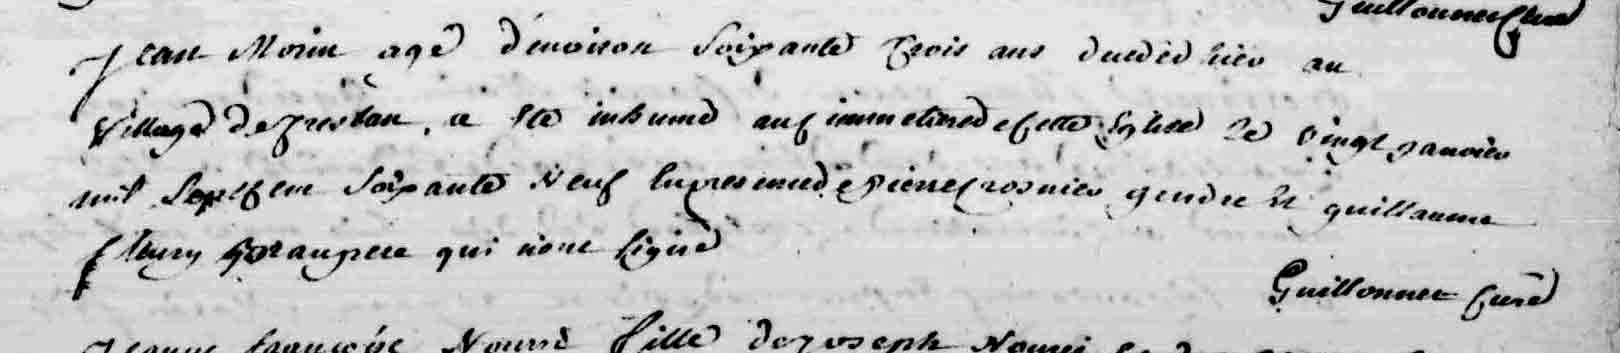 Guillonnet Curé
Jean Morin agé d'environ soixante trois ans decedé hier au
village de a été inhumé au cimmetiere de cette Eglise le vingt janvier
mil sept cent soixante neuf en presence de pierre Crosnier gendre et guillaume
fleury beaupere qui n'ont signé
Guillonnet Curé
Jeanne françoise Nourri fille de joseph Nourri